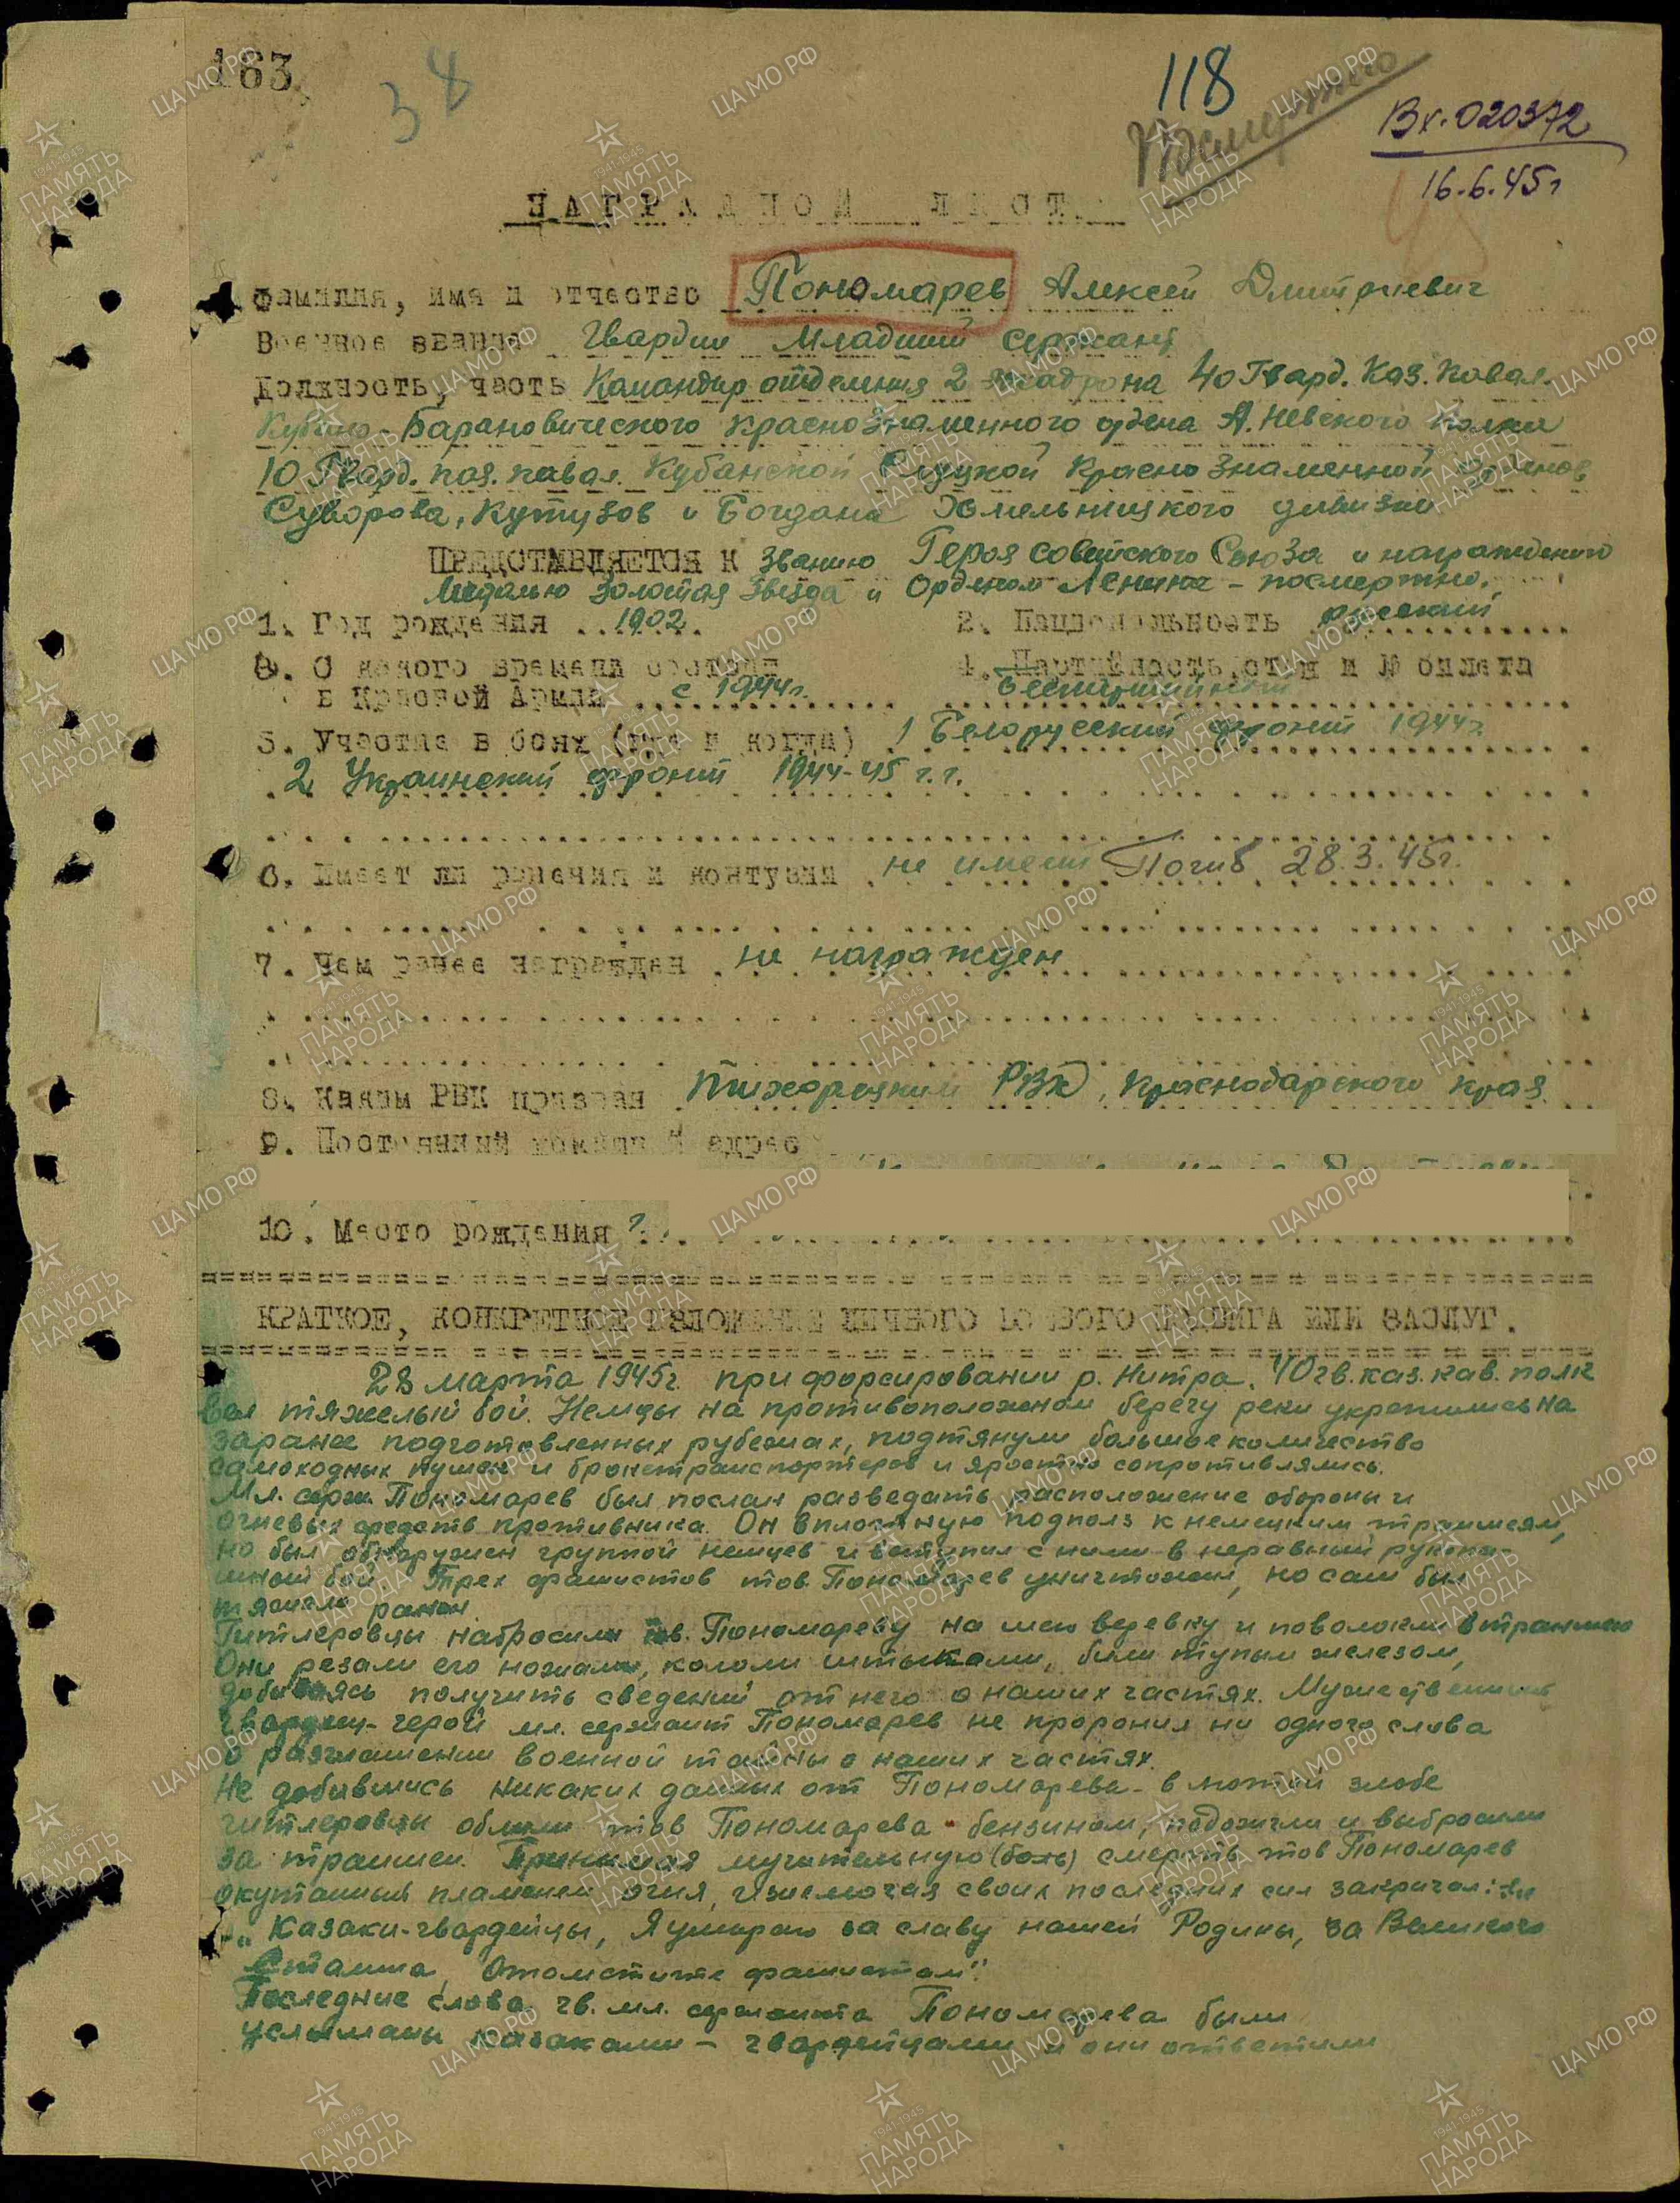 163
38
118
Посмертно
Вх. 020372
16.6.45 г
НАГРАДНОЙ ЛИСТ
Фамилия, имя и отчество Пономарев Алексей Дмитриевич
Военное звание Гвардии Младший сержант
Должность, часть Командир отделения 2 эскадрона 40 Гвард. Каз. Кавал.
Кубано-Барановического Краснознаменного ордена А. Невского полка
10 Гвард. каз. кавал. Кубанской Слуцкой Краснознаменной орденов
Суворова, Кутузов и Богдана Хмельницкого дивизии
ПРЕДСТАВЛЯЕТСЯ К званию Героя Советского Союза и награждению
Медалью Золотая Звезда и Орденом Ленина - посмертно.
1. Год рождения 1902
2. Национальность русский
3. С какого времени состоит
в Красной Армии с 1944 г.
4. Партийность, стаж и № билета
беспартийный
5. Участие в боях (где и когда) 1 Белорусский фронт 1944 г.
2 Украинский фронт 1944-45 г.г.
6. Имеет ли ранения и контузии не имеет Погиб 28.3.45 г.
7. Чем ранее награжден не награжден
8. Каким РВК призван Тихорецким РВК, Краснодарского края.
9. Постоянный домашний адрес
10. Место рождения
КРАТКОЕ, КОНКРЕТНОЕ ИЗЛОЖЕНИЕ ЛИЧНОГО БОЕВОГО ПОДВИГА ИЛИ ЗАСЛУГ.
28 марта 1945 г. при форсировании р. Нитра. 40 гв. каз. кав. полк
вел тяжелый бой. Немцы на противоположном берегу реки укрепились на
заранее подготовленных рубежах, подтянули большое количество
самоходных пушек и бронетранспортеров и яростно сопротивлялись.
Мл. серж. Пономарев был послан разведать расположение обороны и
огневых средств противника. Он вплотную подполз к немецким траншеям,
но был обнаружен группой немцев и вступил с ними в неравный рукопа-
шный бой. Трех фашистов тов. Пономарев уничтожил, но сам был
тяжело ранен.
Гитлеровцы набросили тов. Пономареву на шею веревку и поволокли в траншею
Они резали его ножами, кололи штыками, били тупым железом,
добиваясь получить сведений от него о наших частях. Мужественный
гвардеец-герой мл. сержант Пономарев не проронил ни одного слова
о разглашении военной тайны о наших частях.
Не добившись никаких данных от Пономарева - в лютой злобе
гитлеровцы облили тов Пономарева бензином, подожгли и выбросили
за траншеи. Принимая мучительную (боль) смерть тов Пономарев
окутанный пламенем огня, изнемогая своих последних сил закричал:
"Казаки-гвардейцы, Я умираю за славу нашей Родины, за Великого
Сталина, Отомстите фашистам".
Последние слова гв. мл. сержанта Пономарева были
услышаны казаками - гвардейцами и они ответили